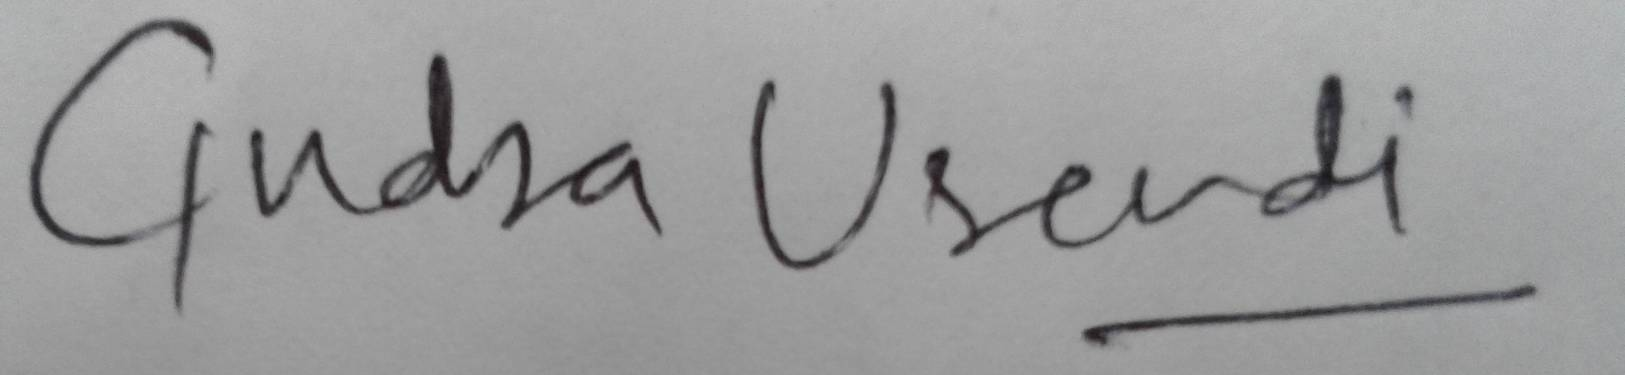 Gudsa Usendi